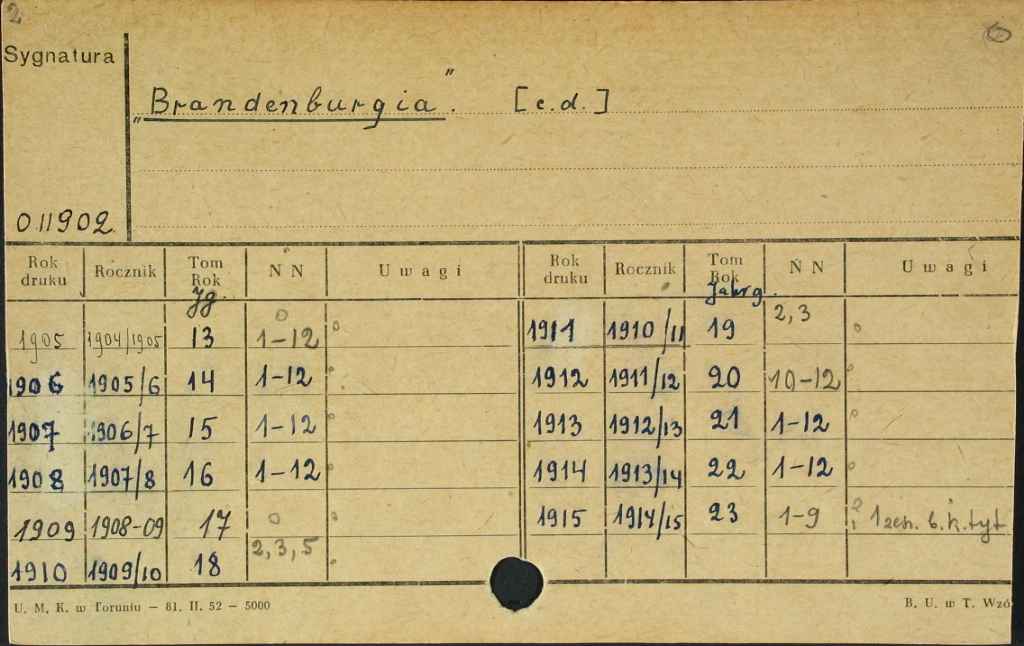 2
Sygnatura
„Brandenburgia”. [c.d.]
011902
Rok druku Rocznik Tom Rok N N Uwagi Rok druku Rocznik Tom Rok N N Uwagi
Jg. Jahrg.
1905 1904/1905 13 1-12
1906 1905/6 14 1-12
1907 1906/7 15 1-12
1908 1907/8 16 1-12
1909 1908-09 17 0
1910 1909/10 18 2,3,5
1911 1910/11 19 2,3
1912 1911/12 20 10-12
1913 1912/13 21 1-12
1914 1913/14 22 1-12
1915 1914/15 23 1-9 1 zesz. b. k. tyt
U. M. K. w Toruniu — 81. II. 52 — 5000
B. U. w T. Wzó